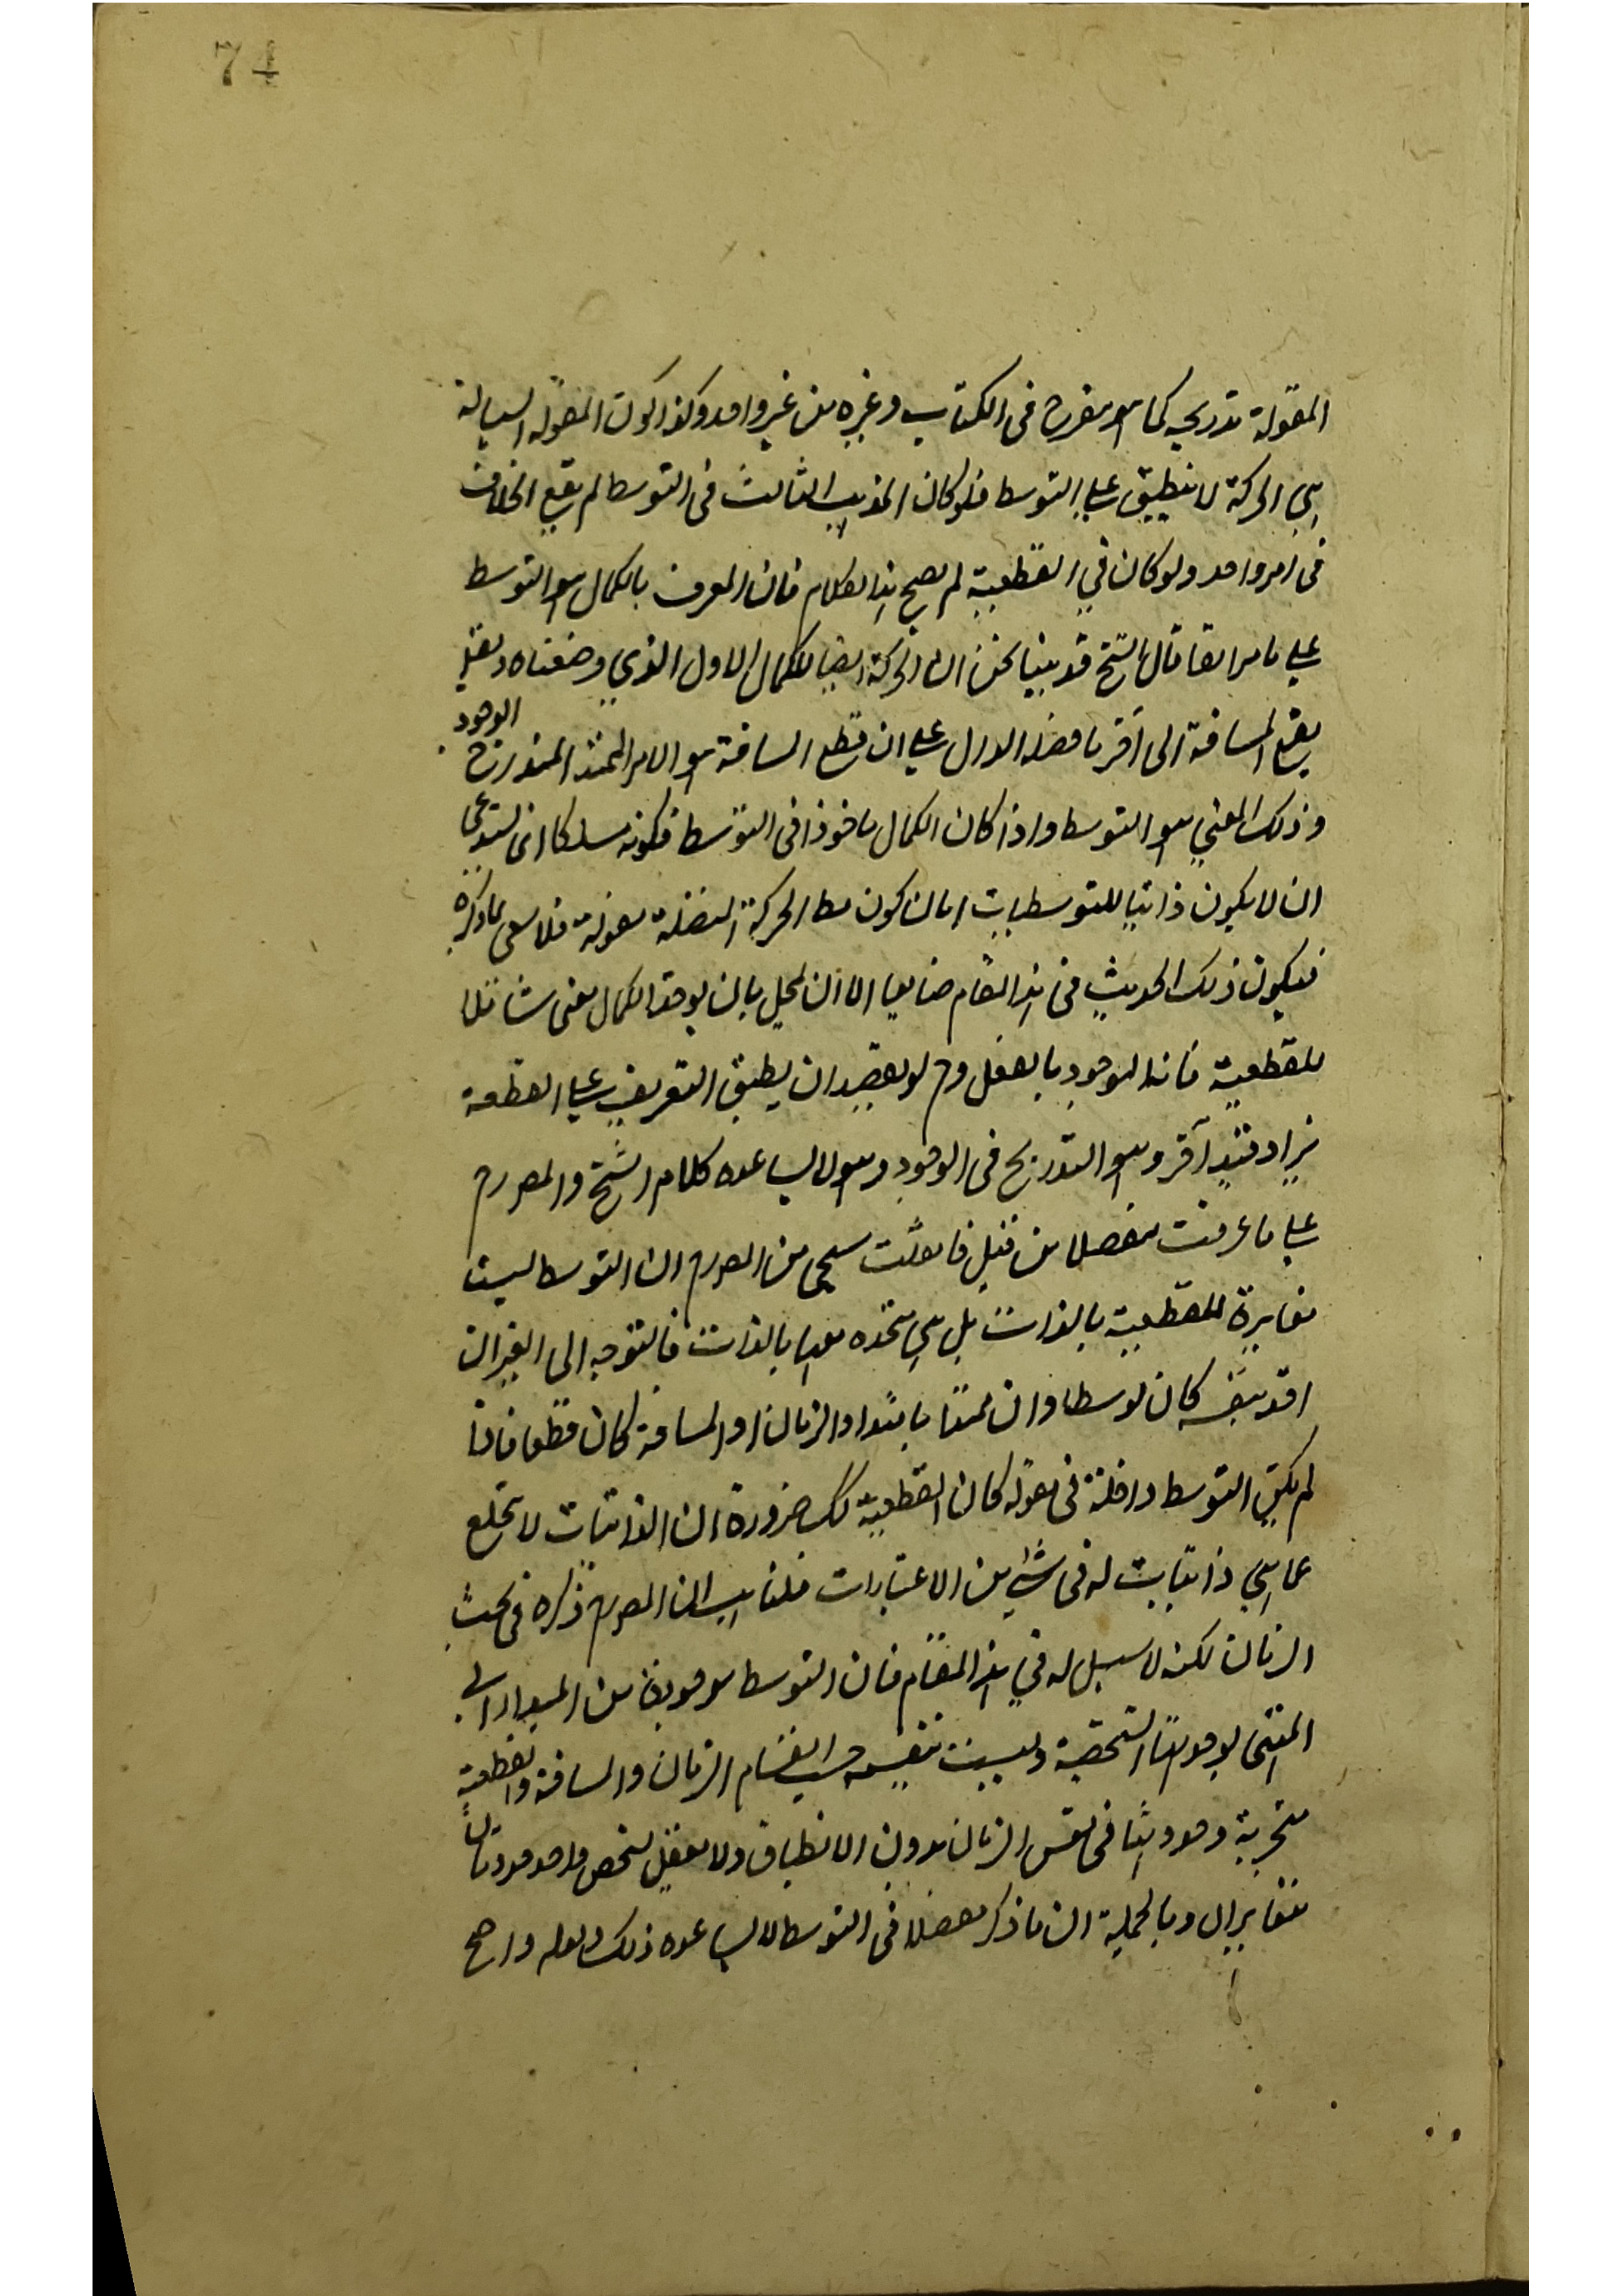 74
المقولة تدريجيه كما هو مفرح فى الكتاب وغيره من غير واحد وكذا كون المقولة السيالة
هى الحركة لا ينطبق على التوسط فلو كان المذهب الثالث فى التوسط لم يقع الخلاف
فى امر واحد ولو كان في القطعية لم يصح هذا الكلام فان المعرف بالكمال هو التوسط
على ما مر انفا قال الشيخ قد بينا نحن ان الحركة ايضا للكمال الاول الذي وصفناه
يقع المسافة الى آخر ما فصله الدال على ان قطع المسافة هو الامر الممتد المتدرج الوجود
وذلك المعني هو التوسط واذا كان الكمال ماخوذا فى التوسط فكونه مسلكا انى يستدعى
ان لا يكون ذاتيا للتوسط الحركة مقولة فلا بما ذكره
فيكون ذلك الحديث فى هذا المقام ضايعا الا ان يحيل بان يوخذ الكمال معنى شاملا
للقطعية فانها موجود بالفعل وح لو يقصد ان يطبق التعريف على القطعية
يزاد قيد آخر وهو التدريج فى الوجود وهو لا يساعده كلام الشيخ والمص رح
على ما عرفت مفصلا من قبل فان قلت سيجى من المص رح ان التوسط ليست
مغايرة للقطعية بالذات بل هى متحده معها بالذات فالتوجه الى الغير ان
اخذ بنفسه كان توسطا وان ممتدا بامتداد الزمان او المسافة كان قطعا فاذا
لم يكن التوسط داخلة فى مقولة كان القطعية كك ضرورة ان الذاتيات لا تخلع
عما هى ذاتيات له فى شئ من الاعتبارات قلنا هب ان المص رح ذكره فى بحث
الزمان لكنه لا سبيل له في هذا المقام فان التوسط موجودة من المبدا الى
المنتهى بوجودها الشخصية وليست تنقسم حسب انقسام الزمان والمسافة والقطعية
متجزية وجودها فى نفس الزمان بدون الانطباق ولا يعقل لشخص واحد وجودان
متغايران وبالجملة ان ما ذكر مفصلا فى التوسط لا يساعده ذلك قوله واضح